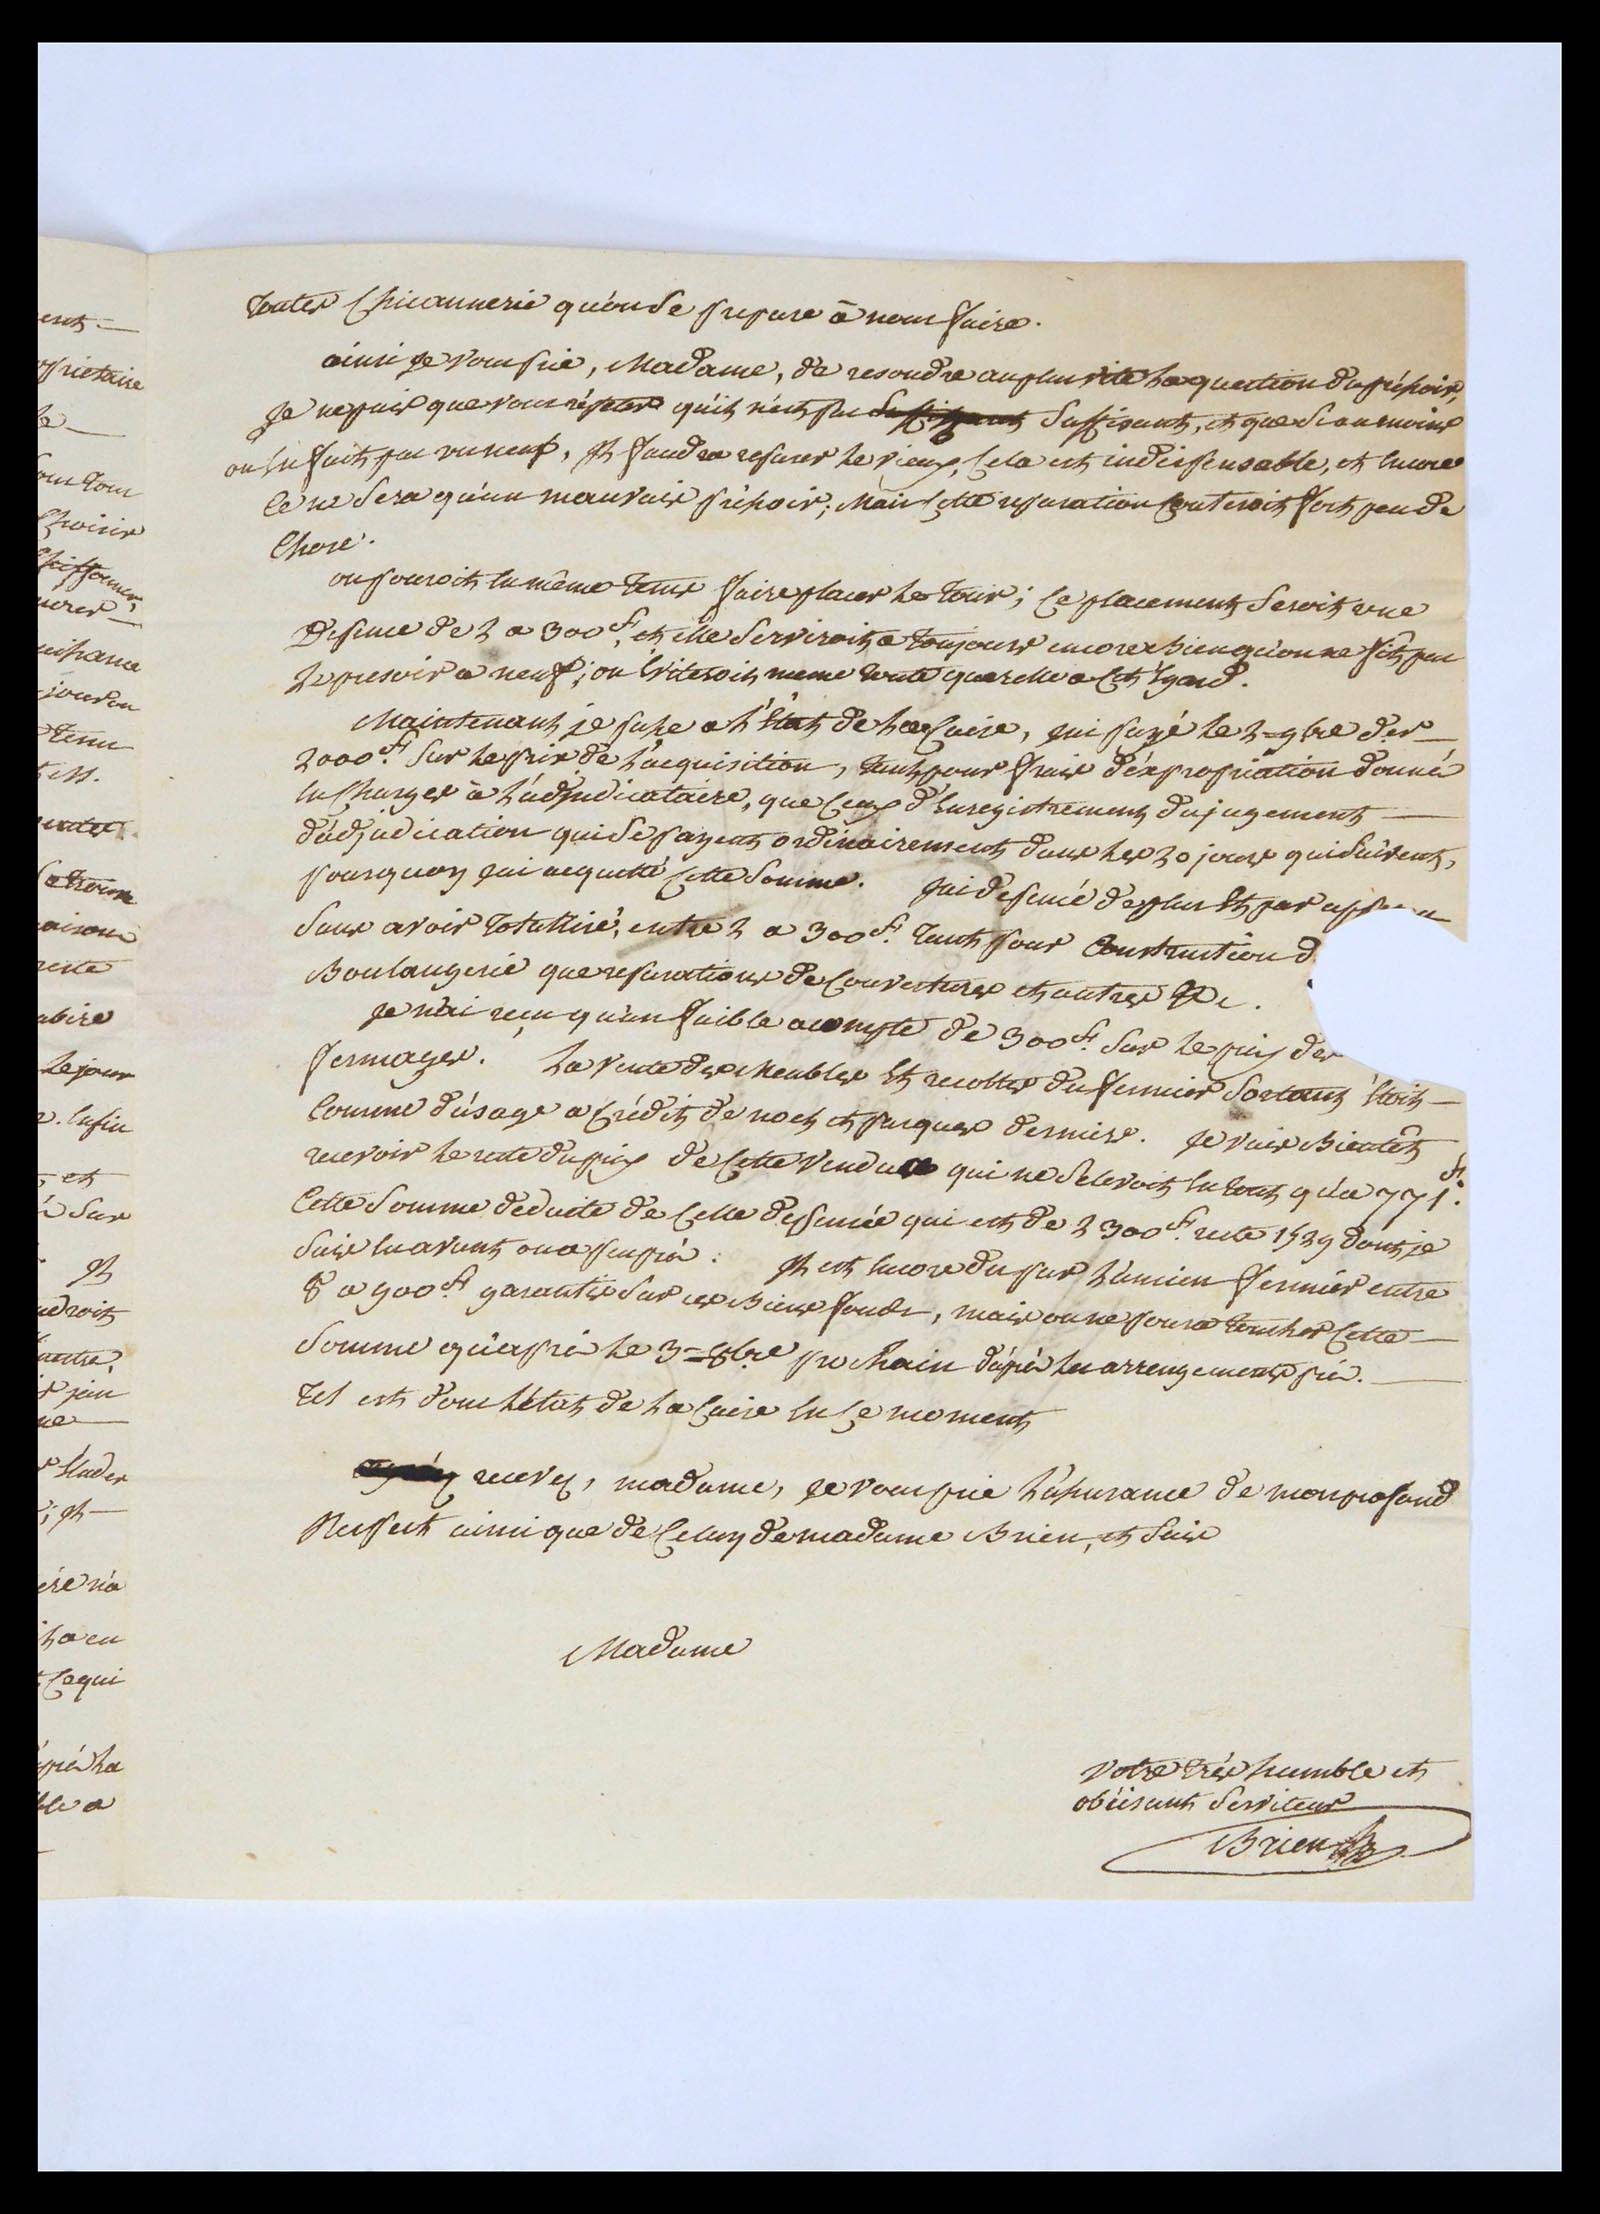 toutes Chicannerie qu'on se prepare à nous faire.
ainsi je vous prie, Madame, de resoudre au plus vite la question du préssoir,
Je ne puis que vous répéter qu'il n'est pas suffisant suffisant, et que si au moins
on en fait pas un neuf, il faudra reparer le vieux, cela est indispensable, et encore
ce ne sera qu'un mauvais préssoir; Mais cette reparation couteroit fort peu de
Chose.
on pouroit en même tems faire placer le tour; ce placement seroit une
Depense de 2 a 300 f. et elle serviroit a toujours encore bien qu'on ne fit pas
le presoir a neuf; on éviteroit meme toute querelle a cet égard.
Maintenant je passe a l'état de la Caisse, j'ai payé le 2 9bre der
2000 f. sur le prix de l'acquisition, tant pour frais d'éxpropriation donné
en Charges à l'adjudicataire, que ceux d'Enregistrement du jugement
d'adjudication qui se payent ordinairement dans les 20 jours qui suivent,
pourquoy j'ai acquitté cette somme. J'ai depensé de plus et par
sans avoir totallisé, entre 2 a 300 f. tant pour Construction d
Boulangerie que reparations de Couvertures et autres &c.
Je n'ai reçu qu'un faible acompte de 300 f. sur le prix des
fermages. La vente des Meubles et recoltes du fermier sortant étoit
comme d'usage a Crédit de noel et pasques dernier. Je vais Bientôt
recevoir le reste du prix de cette vendue qui ne s'elevoit en tout qu'a 771 f.
Cette somme deduite de celle depensée qui est de 2300 f. reste 1529 dont je
suis en avant ou a peu près. Il est encore du par l'ancien fermier entre
8 a 900 f. garantis sur ses Biens fonds, mais on ne poura toucher cette
somme qu'après le 3 8bre prochain d'après les arrengements pris.
Tel est donc l'état de la Caisse en ce moment
recevez, madame, je vous prie l'assurance de mon profond
Respect ainsi que de Celuy de madame Brien, et suis
Madame
Votre très humble et
obéisant Serviteur
Brien
ent
opriétaire
Choisir
le jour
. enfin
et
sur
Il
droit
ère n'a
ce qui